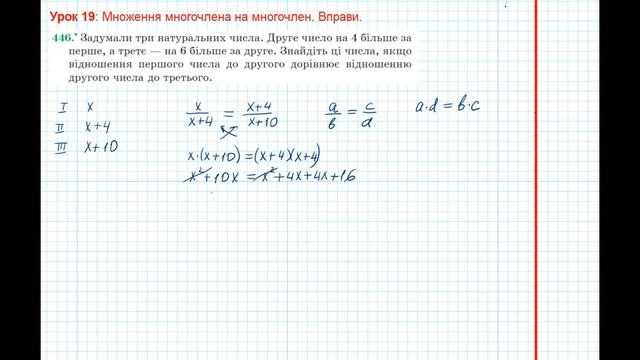 Урок 19: Множення многочлена на многочлен. Вправи.
446.• Задумали три натуральних числа. Друге число на 4 більше за
перше, а третє — на 6 більше за друге. Знайдіть ці числа, якщо
відношення першого числа до другого дорівнює відношенню
другого числа до третього.
I x
II x+4
III x+10
x/(x+4) = (x+4)/(x+10)
a/b = c/d
a·d = b·c
x·(x+10) = (x+4)(x+4)
x²+10x = x²+4x+4x+16